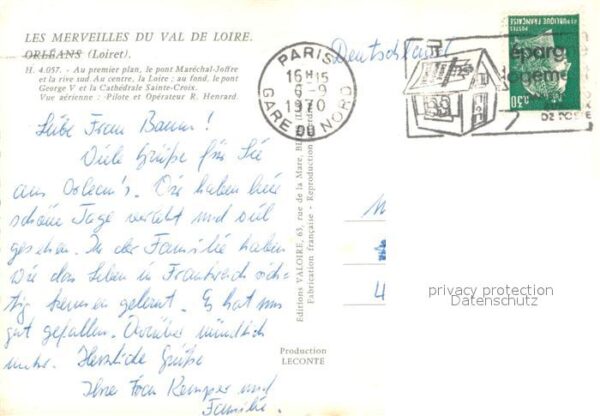 LES MERVEILLES DU VAL DE LOIRE.
ORLÉANS (Loiret).
H. 4.057. - Au premier plan, le pont Maréchal-Joffre
et la rive sud. Au centre, la Loire ; au fond, le pont
George V et la Cathédrale Sainte-Croix.
Vue aérienne : Pilote et Opérateur R. Henrard.
Deutschland
PARIS
16H15
6-9
1970
GARE DU NORD
épargne
logement
DE POSTE
POSTES
RÉPUBLIQUE FRANÇAISE
0,30
Liebe Frau Baum!
Viele Grüße für Sie
aus Orlean's. Wir haben hier
schöne Tage verlebt und viel
gesehen. In der Familie haben
wir das Leben in Frankreich rich-
tig kennen gelernt. Es hat uns
gut gefallen. Darüber mündlich
mehr. Herzliche Grüße
Ihre Frau Kemper und
Familie.
Editions VALOIRE, 63, rue de la Mare,
Fabrication française - Reproduction
Production
LECONTE
privacy protection
Datenschutz